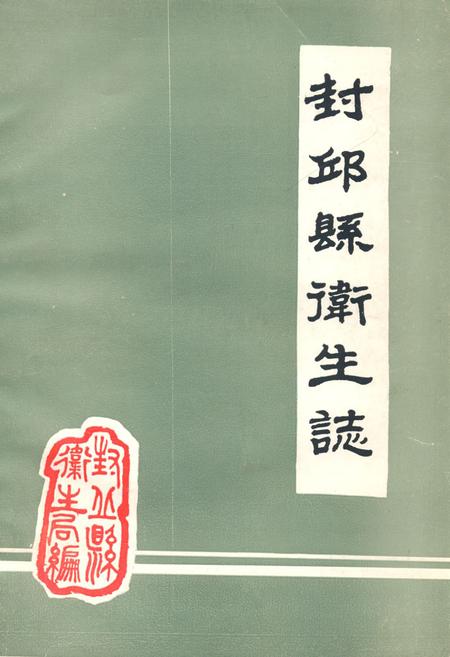 封邱縣衛生誌
封丘縣
衛生局編